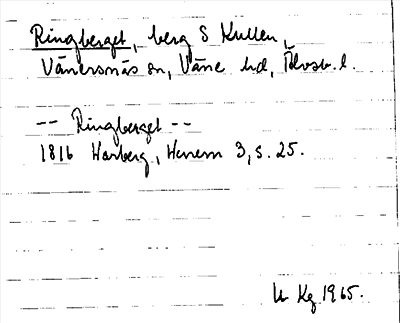 Ringberget, berg S Kullen,
Vänersnäs sn, Väne hd, Älvsb. l.
-- Ringberget --
1816 Harberg, Hunern 3, s. 25.
Kg 1965.